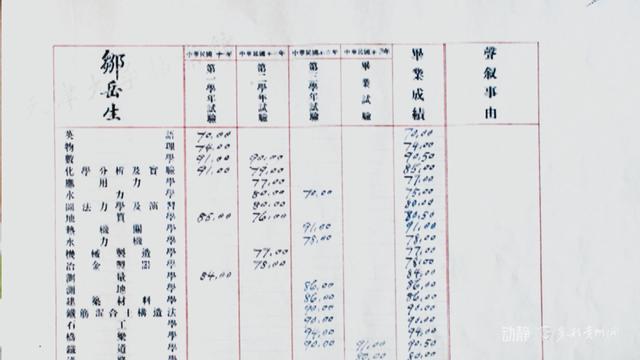 鄒岳生
中華民國十一年 第一學年試驗
中華民國十二年 第二學年試驗
第三學年試驗
畢業試驗
畢業成績
聲叙事由
英語 70.00 70.00
物理 74.00 74.00
數學 91.00 90.00 90.50
化學分析及實驗 91.00 79.00 85.00
應用力學 77.00 77.00
水力學 80.00 70.00 75.00
圖法力學及演習 80.00 80.00
地質學 85.00 76.00 80.50
熱機關 91.00 91.00
水力機學 78.00 78.00
機械製造 77.00 77.00
冶金 78.00 78.00
測量學 84.00 84.00
測地學 86.00 86.00
建築材料 86.00 86.00
鐵筋混合土構造法 90.00 90.00
石工學 90.00 90.00
橋梁學 94.00 94.00
鐵道 90.00 91.00 90.50
80.00 80.00
动静